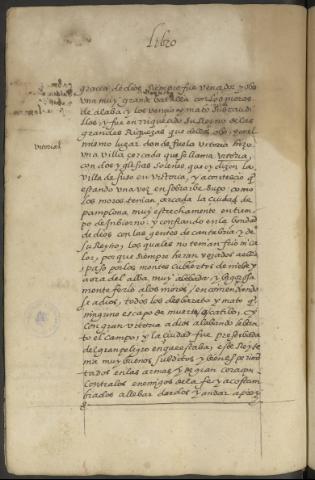 Libro
gracia de dios siempre fue vencedor y obo
una muy grande batalla con los moros
de alaba, y los vençio y mato sus caudi
llos, y fue enrriquesido su Reyno de las
grandes Riquezas que dellos obo, y en el
mismo lugar donde fue la vitoria hizo
vitoria
una villa çercada que se llama vitoria,
con dos yglesias solenes que oy dizen la
villa de suso en victoria, y aconteçio q̃
estando una vez en sobrarbe supo como
los moros tenian çercada la ciudad de
pamplona muy estrechamente en tiem
po de Inbierno. y confiando en la bondad
de dios con las gentes de cantabria y de
su Reyno, los quales no temian frio ni ca
lor, porque siempre heran vezados a ellos,
paso por los montes cubiertos de nieve y
a ora del alba muy
mente ferio a los moros, encomendando
se a dios, todos los desbarato y mato q̃
ninguno escapo de muerte o catibo, y
con gran vitoria a dios alabando
to el campo, y la ciudad fue preserbada
del gran peligro en que estaba, este Rey
mia muy buenos subditos y bienes
tados en las armas y de gran coraçon
contra los enemigos de la fe y acostum
brados a llebar dardos y andar a pie